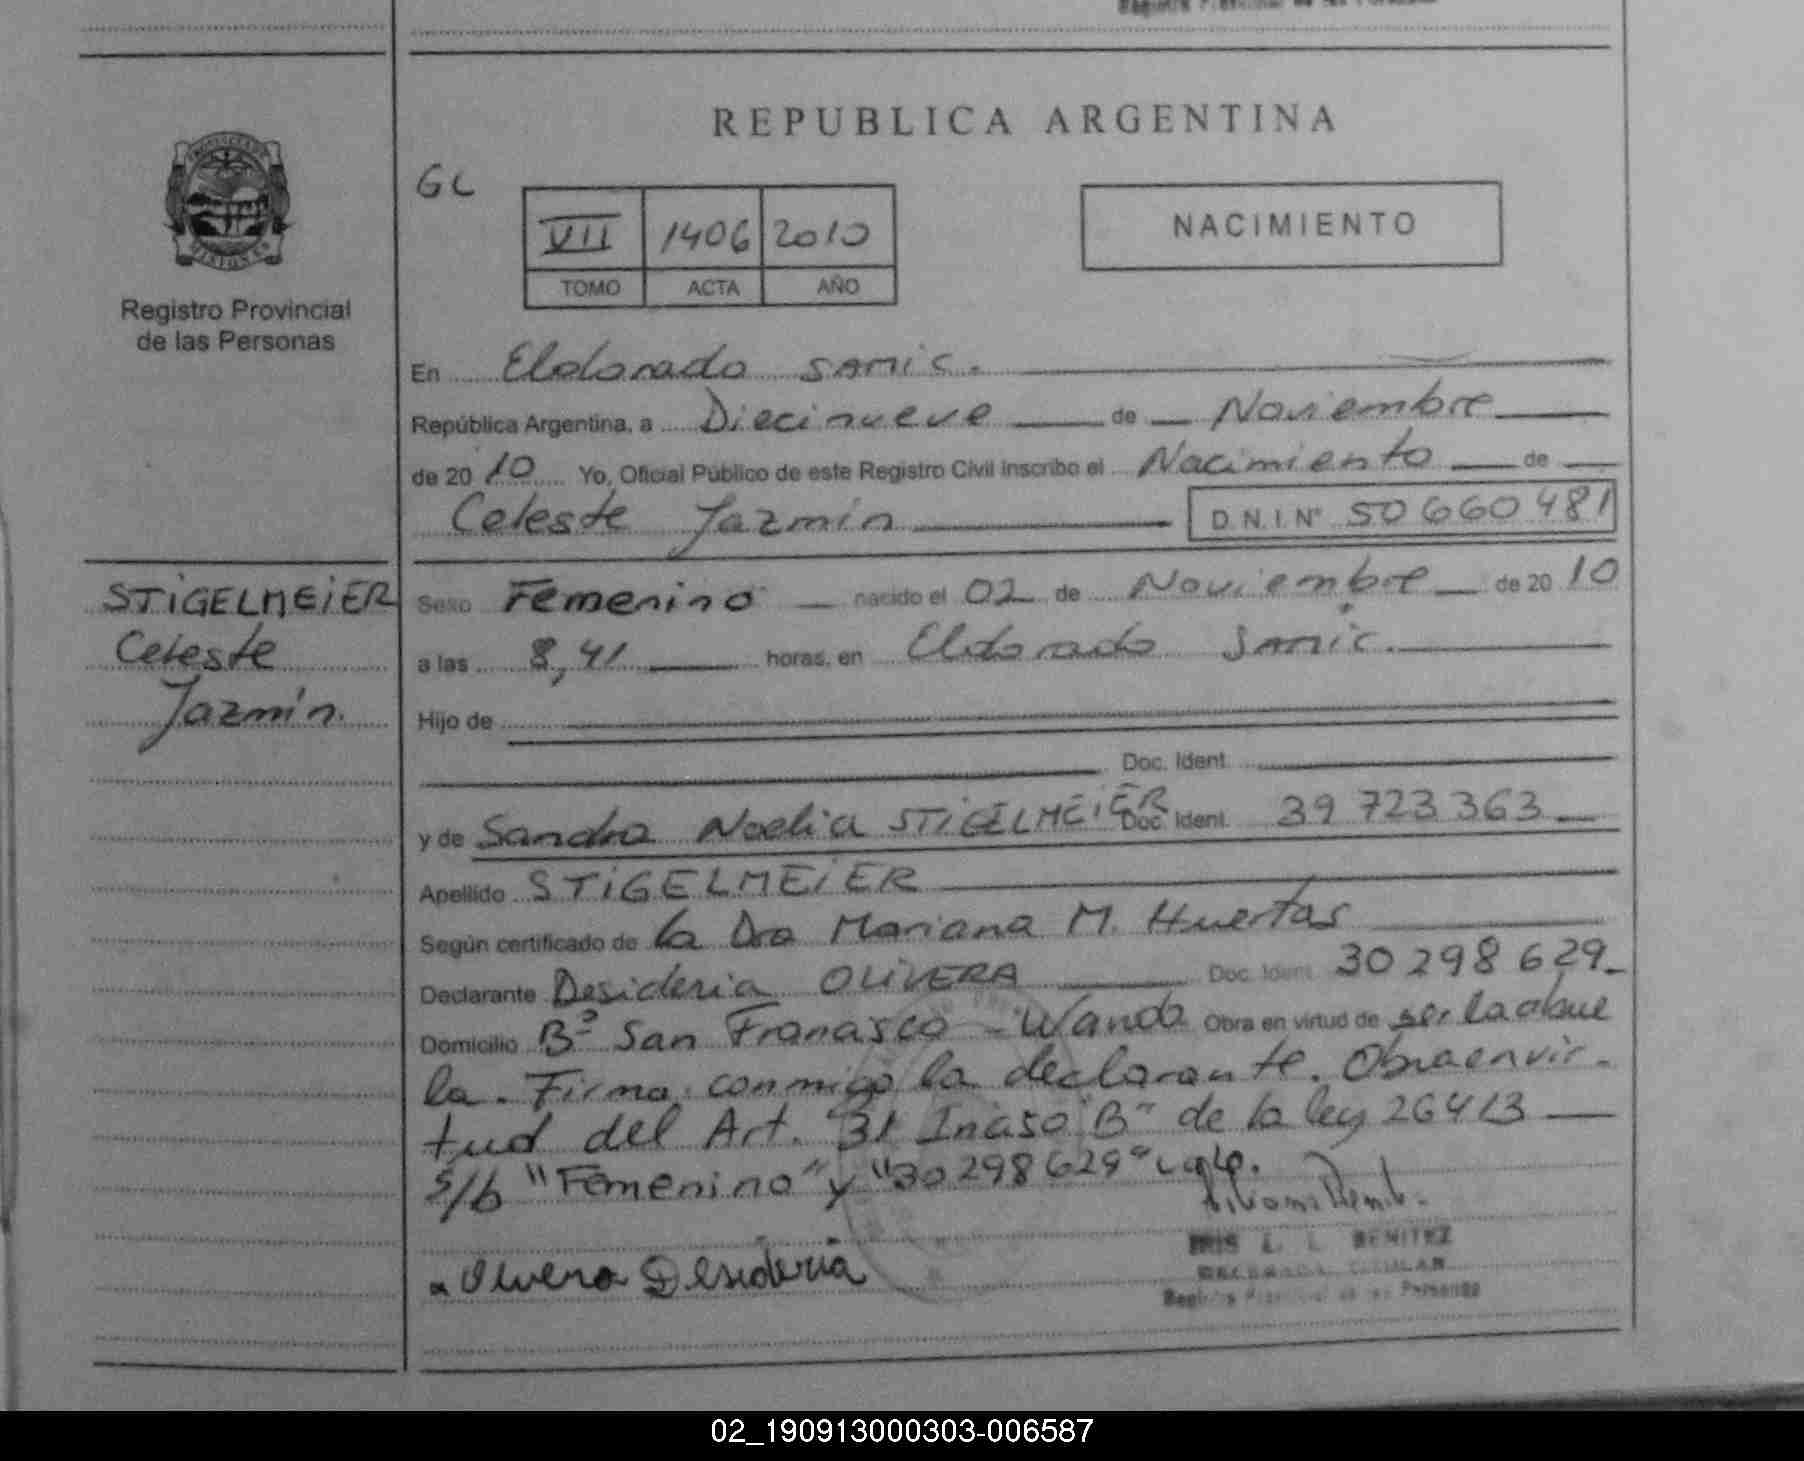 REPUBLICA ARGENTINA
GL
VII 1406 2010
TOMO ACTA AÑO
NACIMIENTO
Registro Provincial
de las Personas
En Eldorado SAMIC.
República Argentina, a Diecinueve de Noviembre
de 20 10 Yo, Oficial Público de este Registro Civil inscribo el Nacimiento de
Celeste Jazmín D.N.I.N° 50 660 481
STIGELMEIER
Celeste
Jazmín.
Sexo Femenino nacido el 02 de Noviembre de 20 10
a las 8,41 horas, en Eldorado Samic.
Hijo de
Doc. Ident.
y de Sandra Noelia STIGELMEIER Doc. Ident. 39 723 363
Apellido STIGELMEIER
Según certificado de la Dra Mariana M. Huertas
Declarante Desideria OLIVERA Doc. Ident. 30 298 629
Domicilio B° San Francisco - Wanda Obra en virtud de ser la abue
la. Firma conmigo la declarante. Obra en vir-
tud del Art. 31 Inciso B" de la ley 26413
s/b "Femenino" y "30 298 629" vale.
Olivera Desideria
IRIS L. L. BENITEZ
Registro Provincial de las Personas
02_190913000303-006587